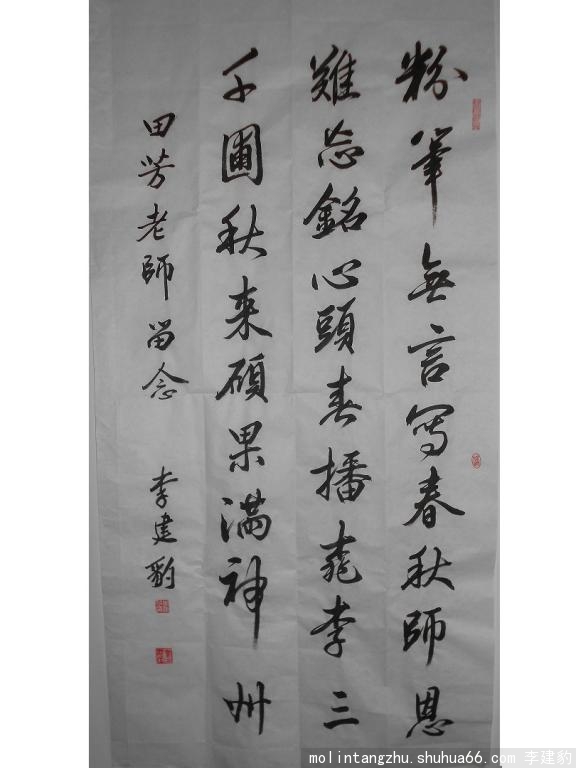 粉筆無言寫春秋師恩
難忘銘心頭春播桃李三
千圃秋来碩果滿神州
田芳老師留念 李建豹
molintangzhu.shuhua66.com 李建豹